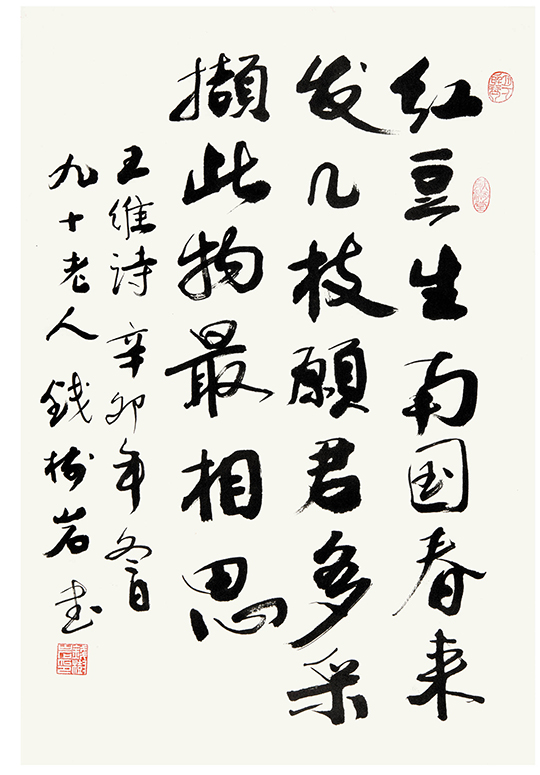 红豆生南国春来
发几枝願君多采
撷此物最相思
王维诗 辛卯年冬日
九十老人钱树岩书